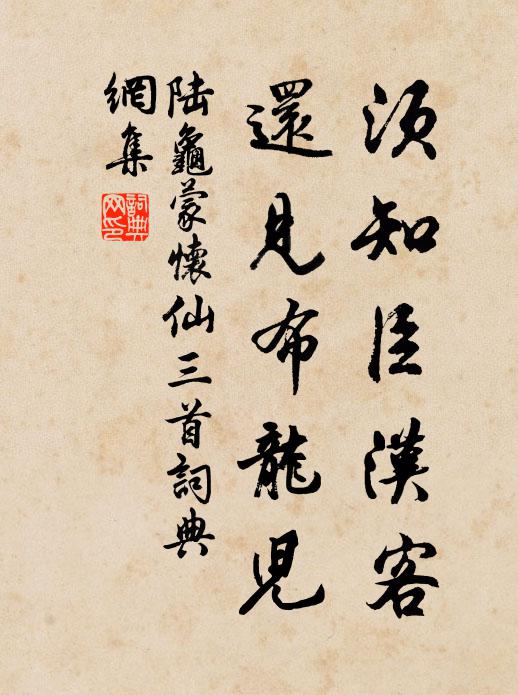 須知臣漢客
還見布龍兒
陸龜蒙懷仙三首詞典
網集
詞典网印